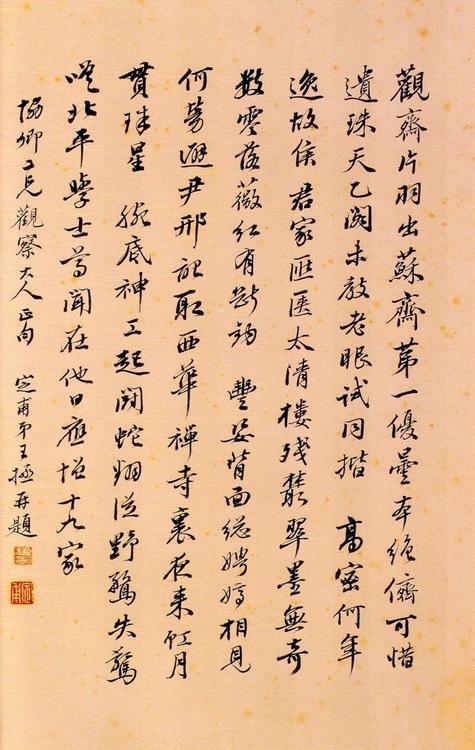 觀齋片羽出蘇齋第一優曇本絶儕可惜
遺珠天乙閣未教老眼試同揩 高密何年
逸故侯君家匪匧太清樓殘叢翠墨無奇
數零落薇紅有斷 豐姿背面總娉婷相見
何勞避尹邢記取西華禪寺裏夜來虹月
貫珠星 腕底神工起鬭蛇翔從野鶩失驚
嗟北平學士等聞在他日應增十九家
協卿二兄觀察大人正句 定甫弟王拯再題